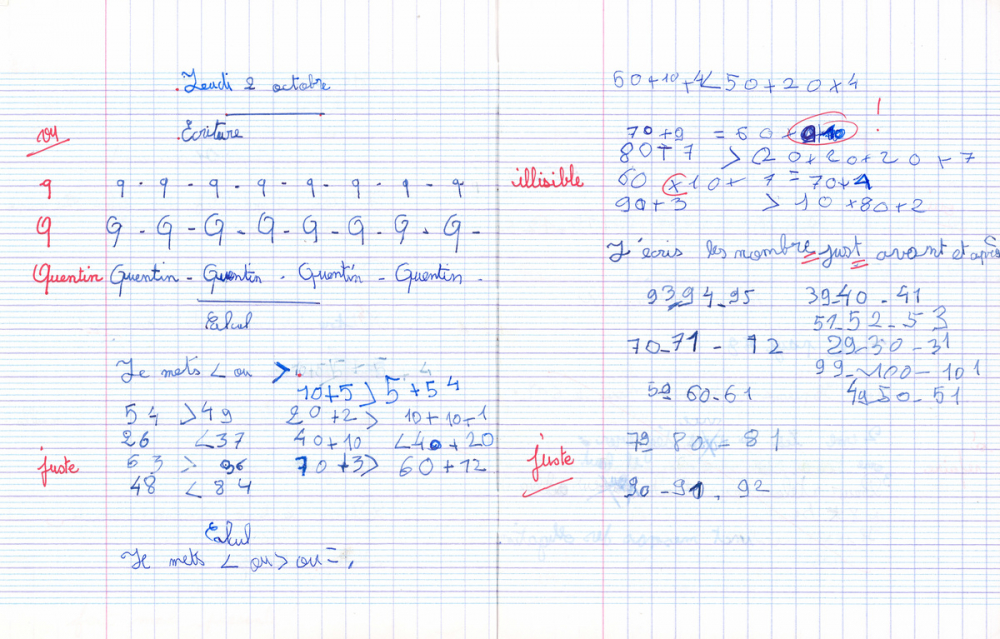 Jeudi 2 octobre
vu
Ecriture
q q . q . q . q . q . q . q . q
Q Q - Q - Q - Q - Q - Q - Q - Q -
Quentin Quentin - Quentin . Quentin - Quentin .
Calcul
Je mets < ou > .
10+5 > 5+5 4
54 > 49 20+2 > 10+10-1
26 < 37 40+10 < 40+20
juste 63 > 36 70+3 > 60+12
48 < 84
Calcul
Je mets < ou > ou = .
60+10+4 < 50+20+4
!
70+9 = 60+
80+7 > 20+20+20+7
illisible 60 +10+ 1 = 70+1
90+3 > 10+80+2
J'écris les nombre just avant et après
93 94-95 39-40-41
51-52-53
70-71-72 29-30-31
99-100-101
59 60-61 49 50-51
79 80-81
juste
90-91. 92